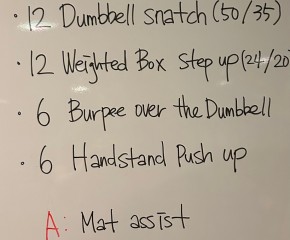 · 12 Dumbbell snatch (50/35)
· 12 Weighted Box step up (24/20
· 6 Burpee over the Dumbbell
· 6 Handstand Push up
A: Mat assist